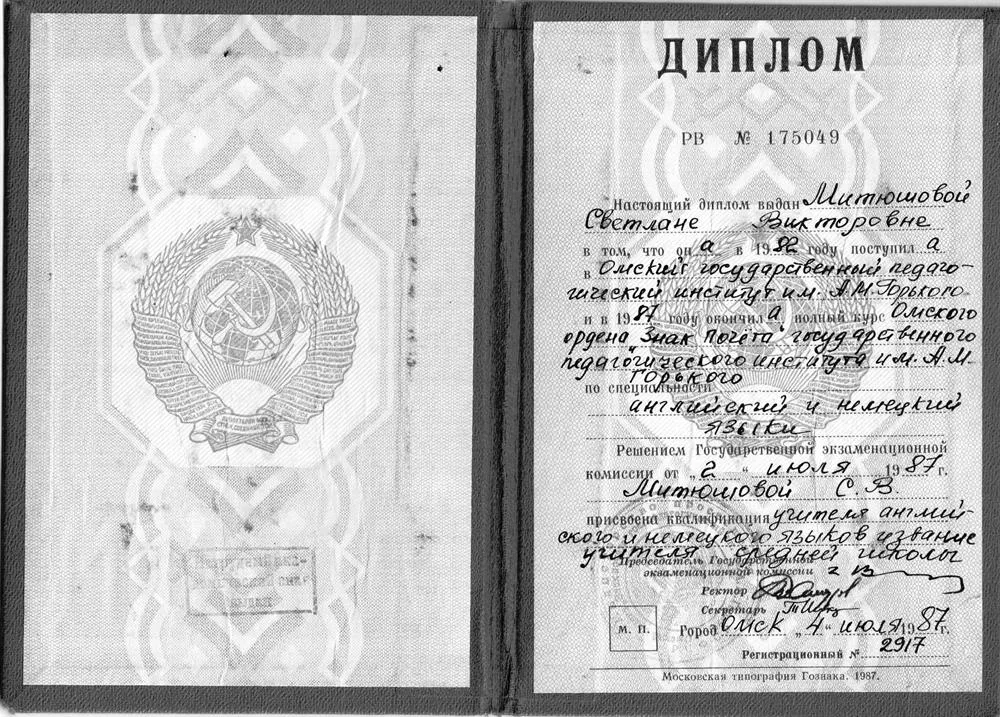 ДИПЛОМ
РВ № 175049
Настоящий диплом выдан Митюшовой
Светлане Викторовне
в том, что он а в 1982 году поступил а
в Омский государственный педаго-
гический институт им. А.М.Горького
и в 1987 году окончил а полный курс Омского
ордена "Знак Почёта" государственного
педагогического института им. А.М.
Горького
по специальности
английский и немецкий
языки
Решением Государственной экзаменационной
комиссии от „2" июля 1987г.
Митюшовой С. В.
присвоена квалификация учителя англий-
ского и немецкого языков и звание
учителя средней школы
Председатель Государственной
экзаменационной комиссии
Ректор
Секретарь
М. П.
Город Омск „4" июля 1987г.
Регистрационный № 2917
Московская типография Гознака. 1987.